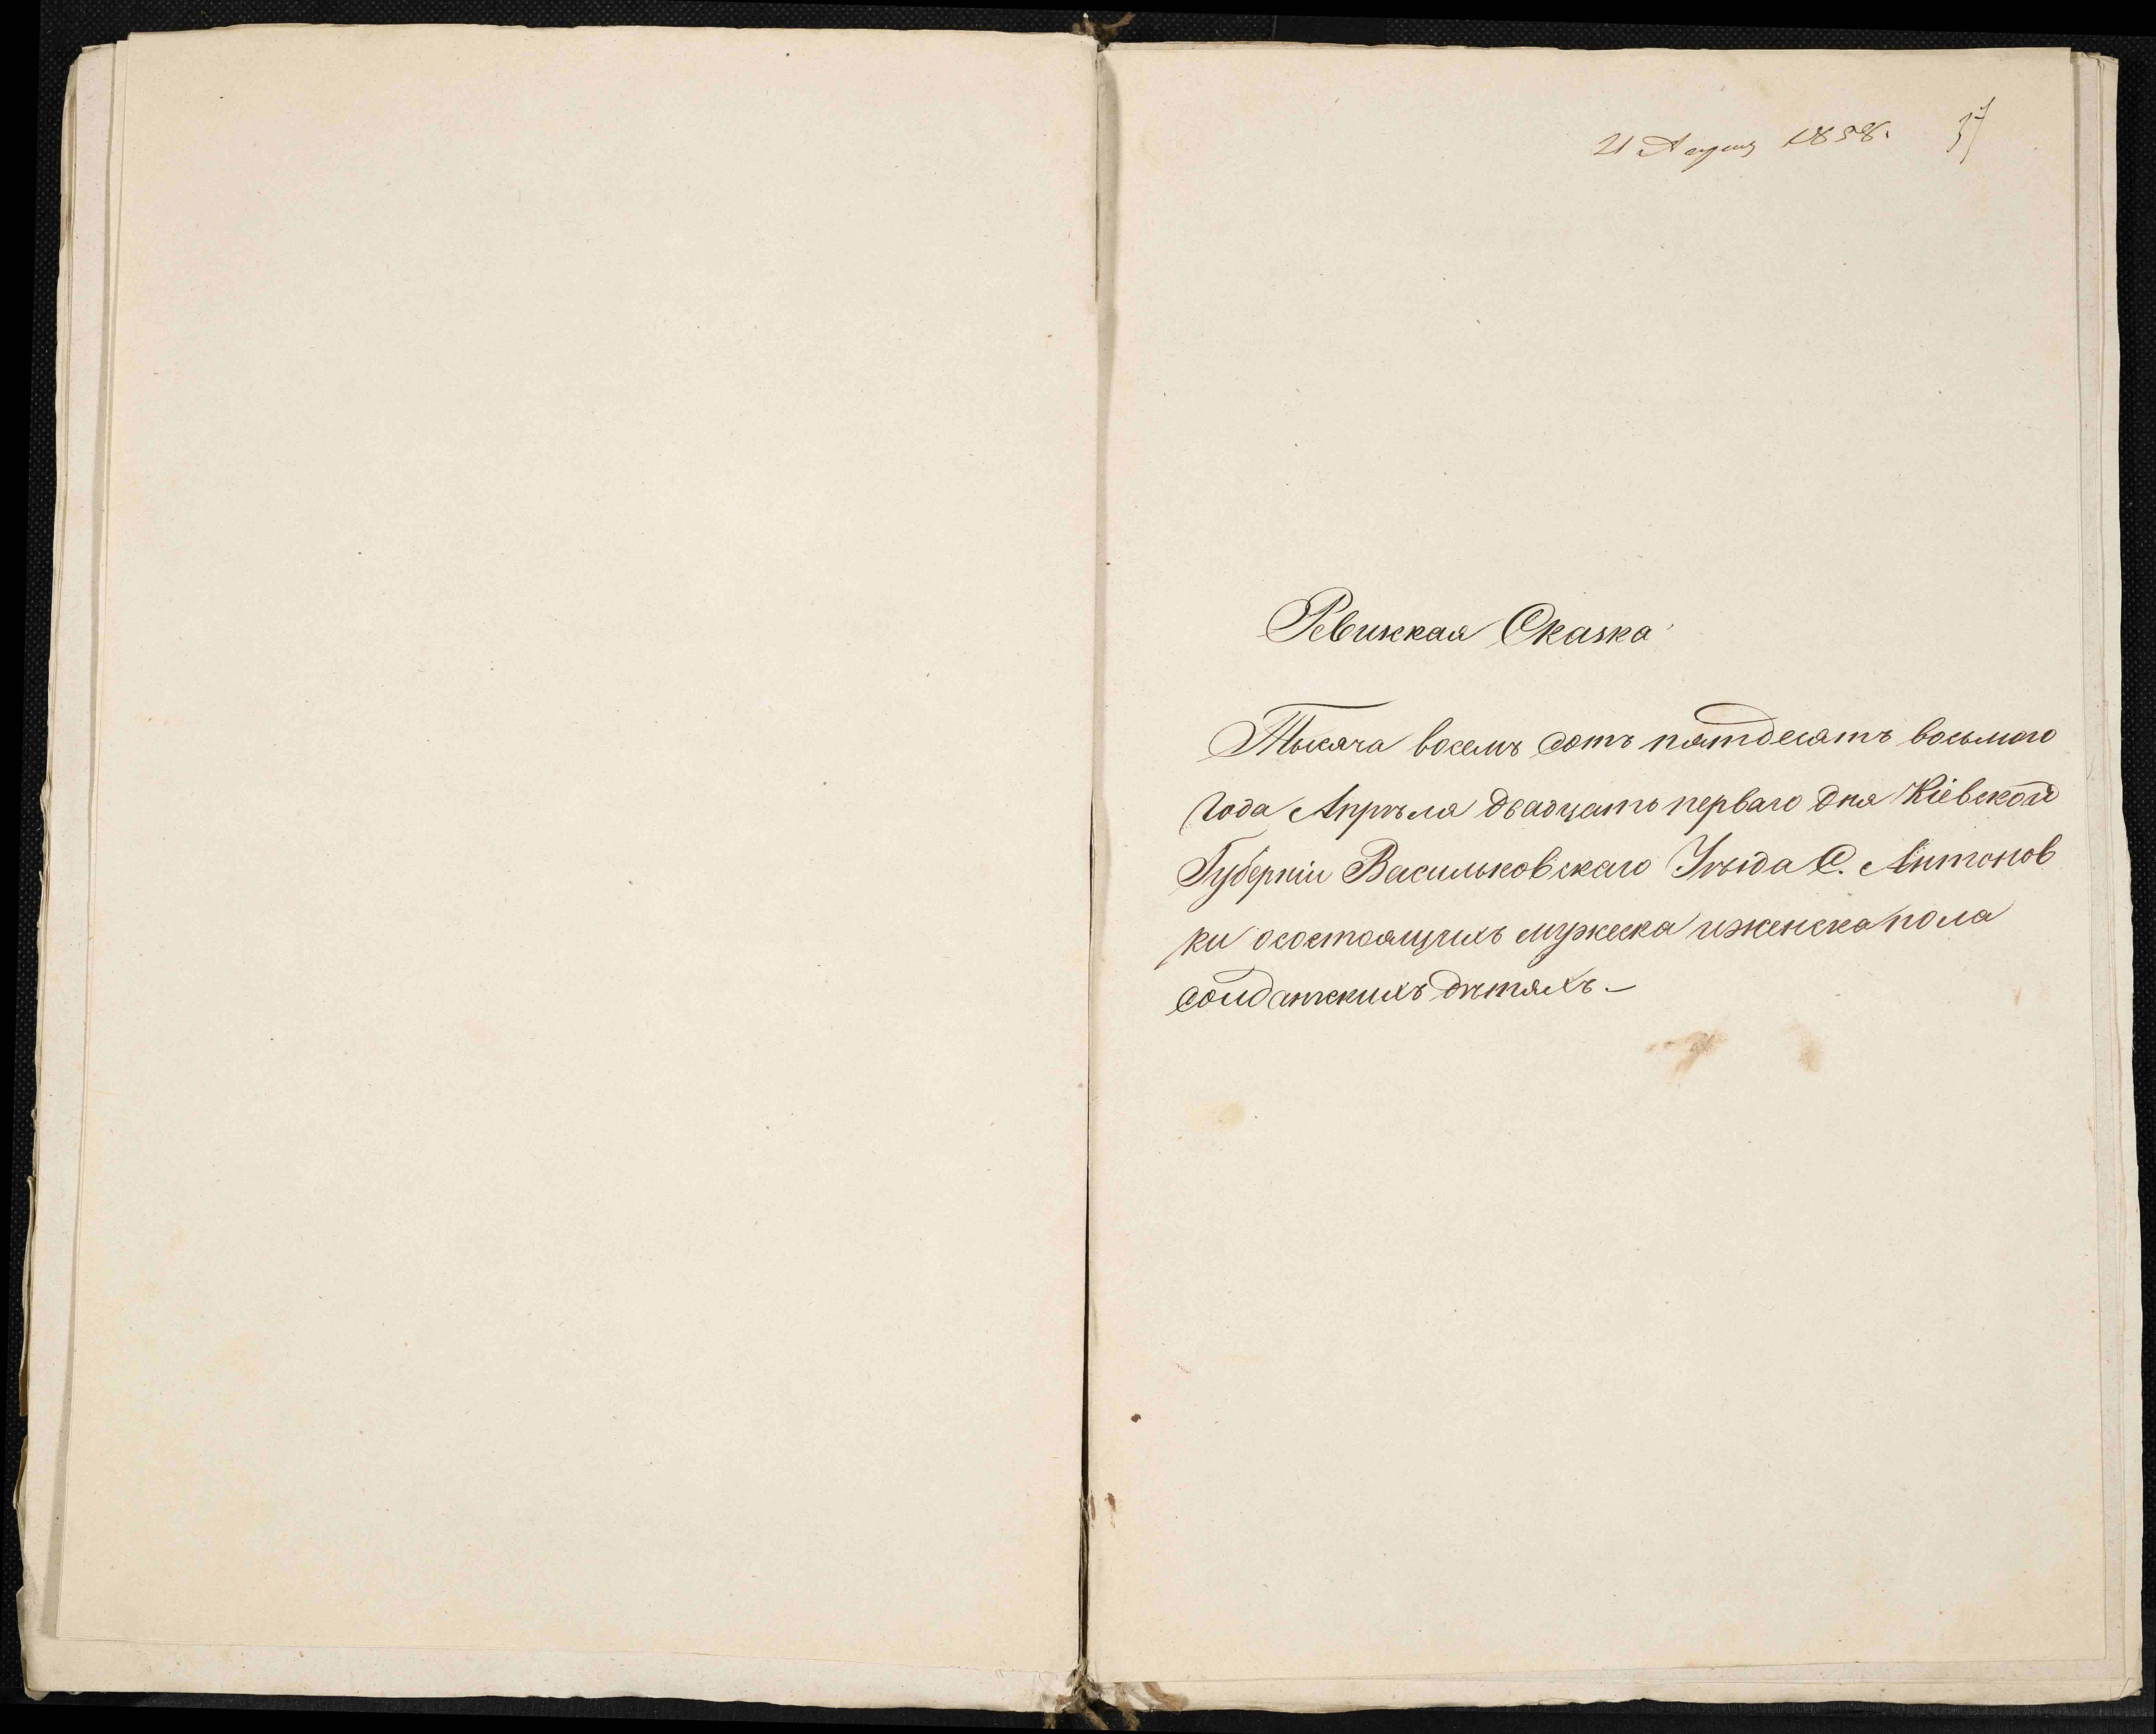 21 1858.
Ревизкая Сказка
Тысяча восемъ сотъ пятдесятъ восьмого
года Апрѣля двадцать перваго дня Кіевской
Губерніи Васильковскаго Уѣзда С. Антонов
ки осостоящихъ мужеска иженска пола
солдатскихъ дѣтяхъ –